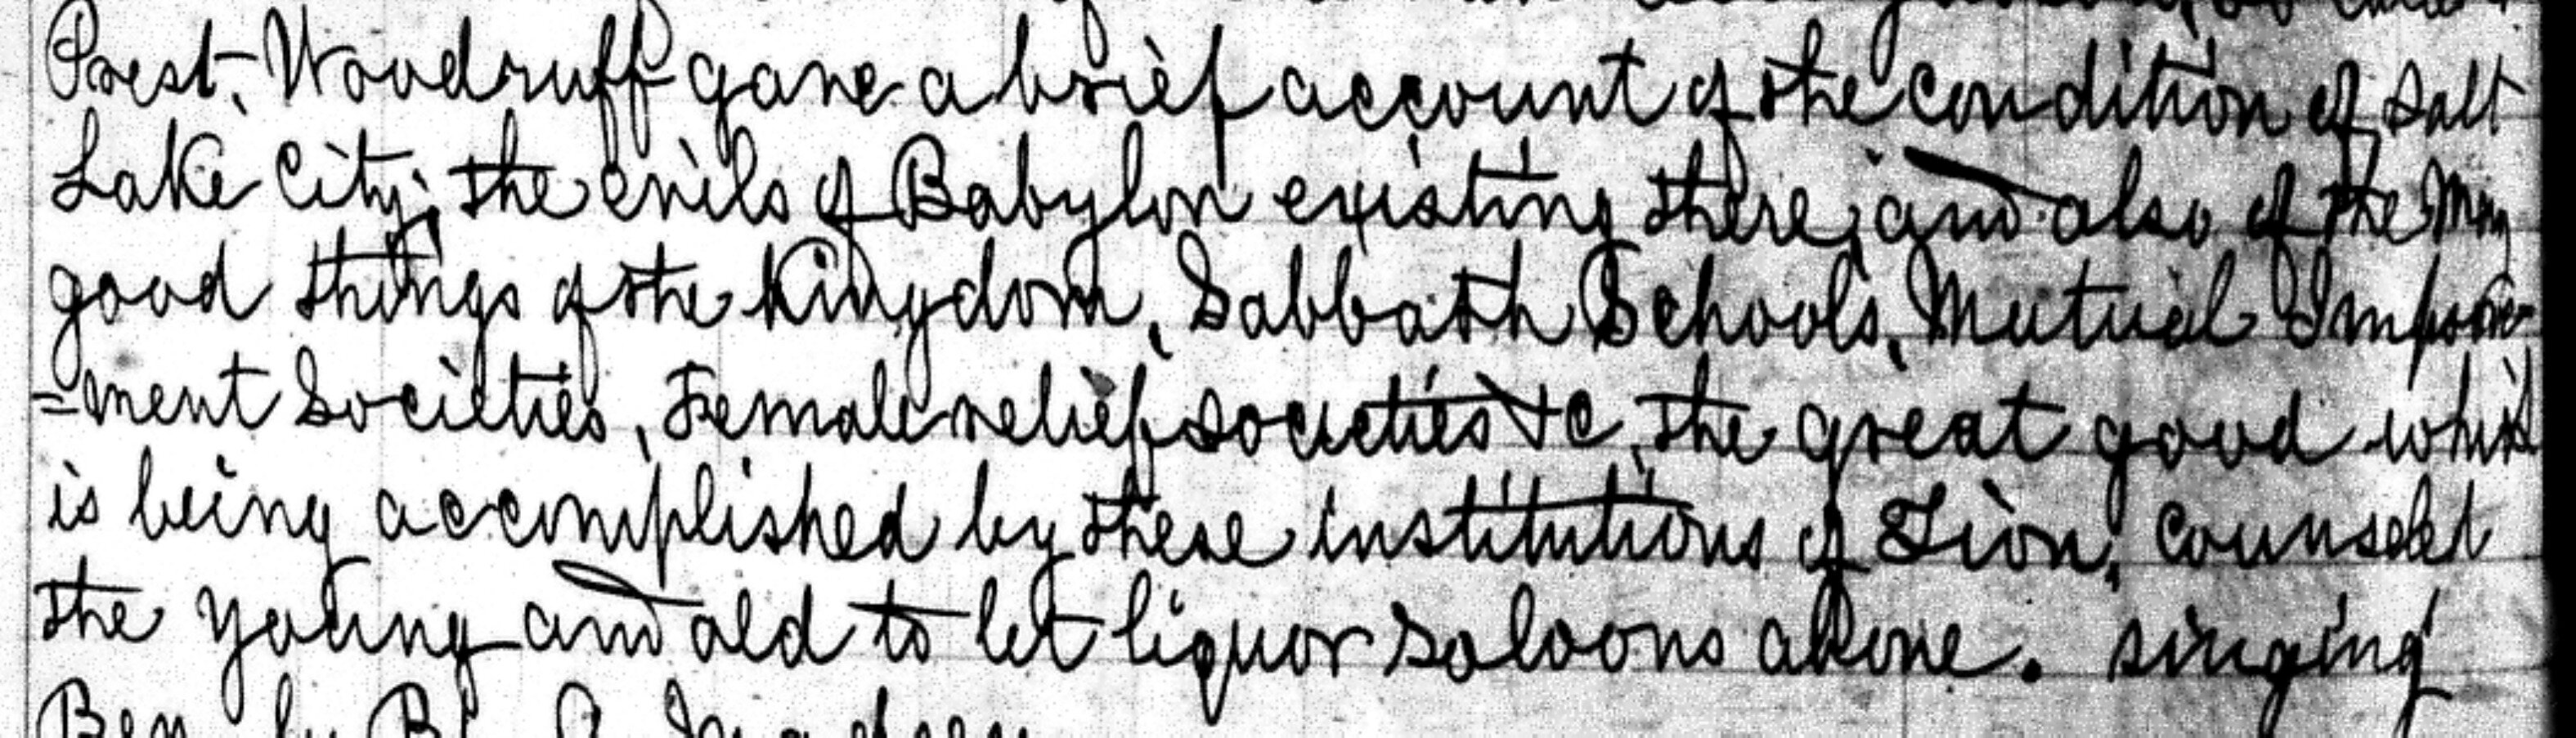 Prest. Woodruff gave a brief account of the condition of Salt
Lake City; the evils of Babylon existing there, and also of the many
good things of the Kingdom, Sabbath Schools, Mutual Improve-
=ment Societies, Female relief societies &c, the great good which
is being accomplished by these institutions of Zion, Counseled
the young and old to let liquor saloons alone. singing
Ben by